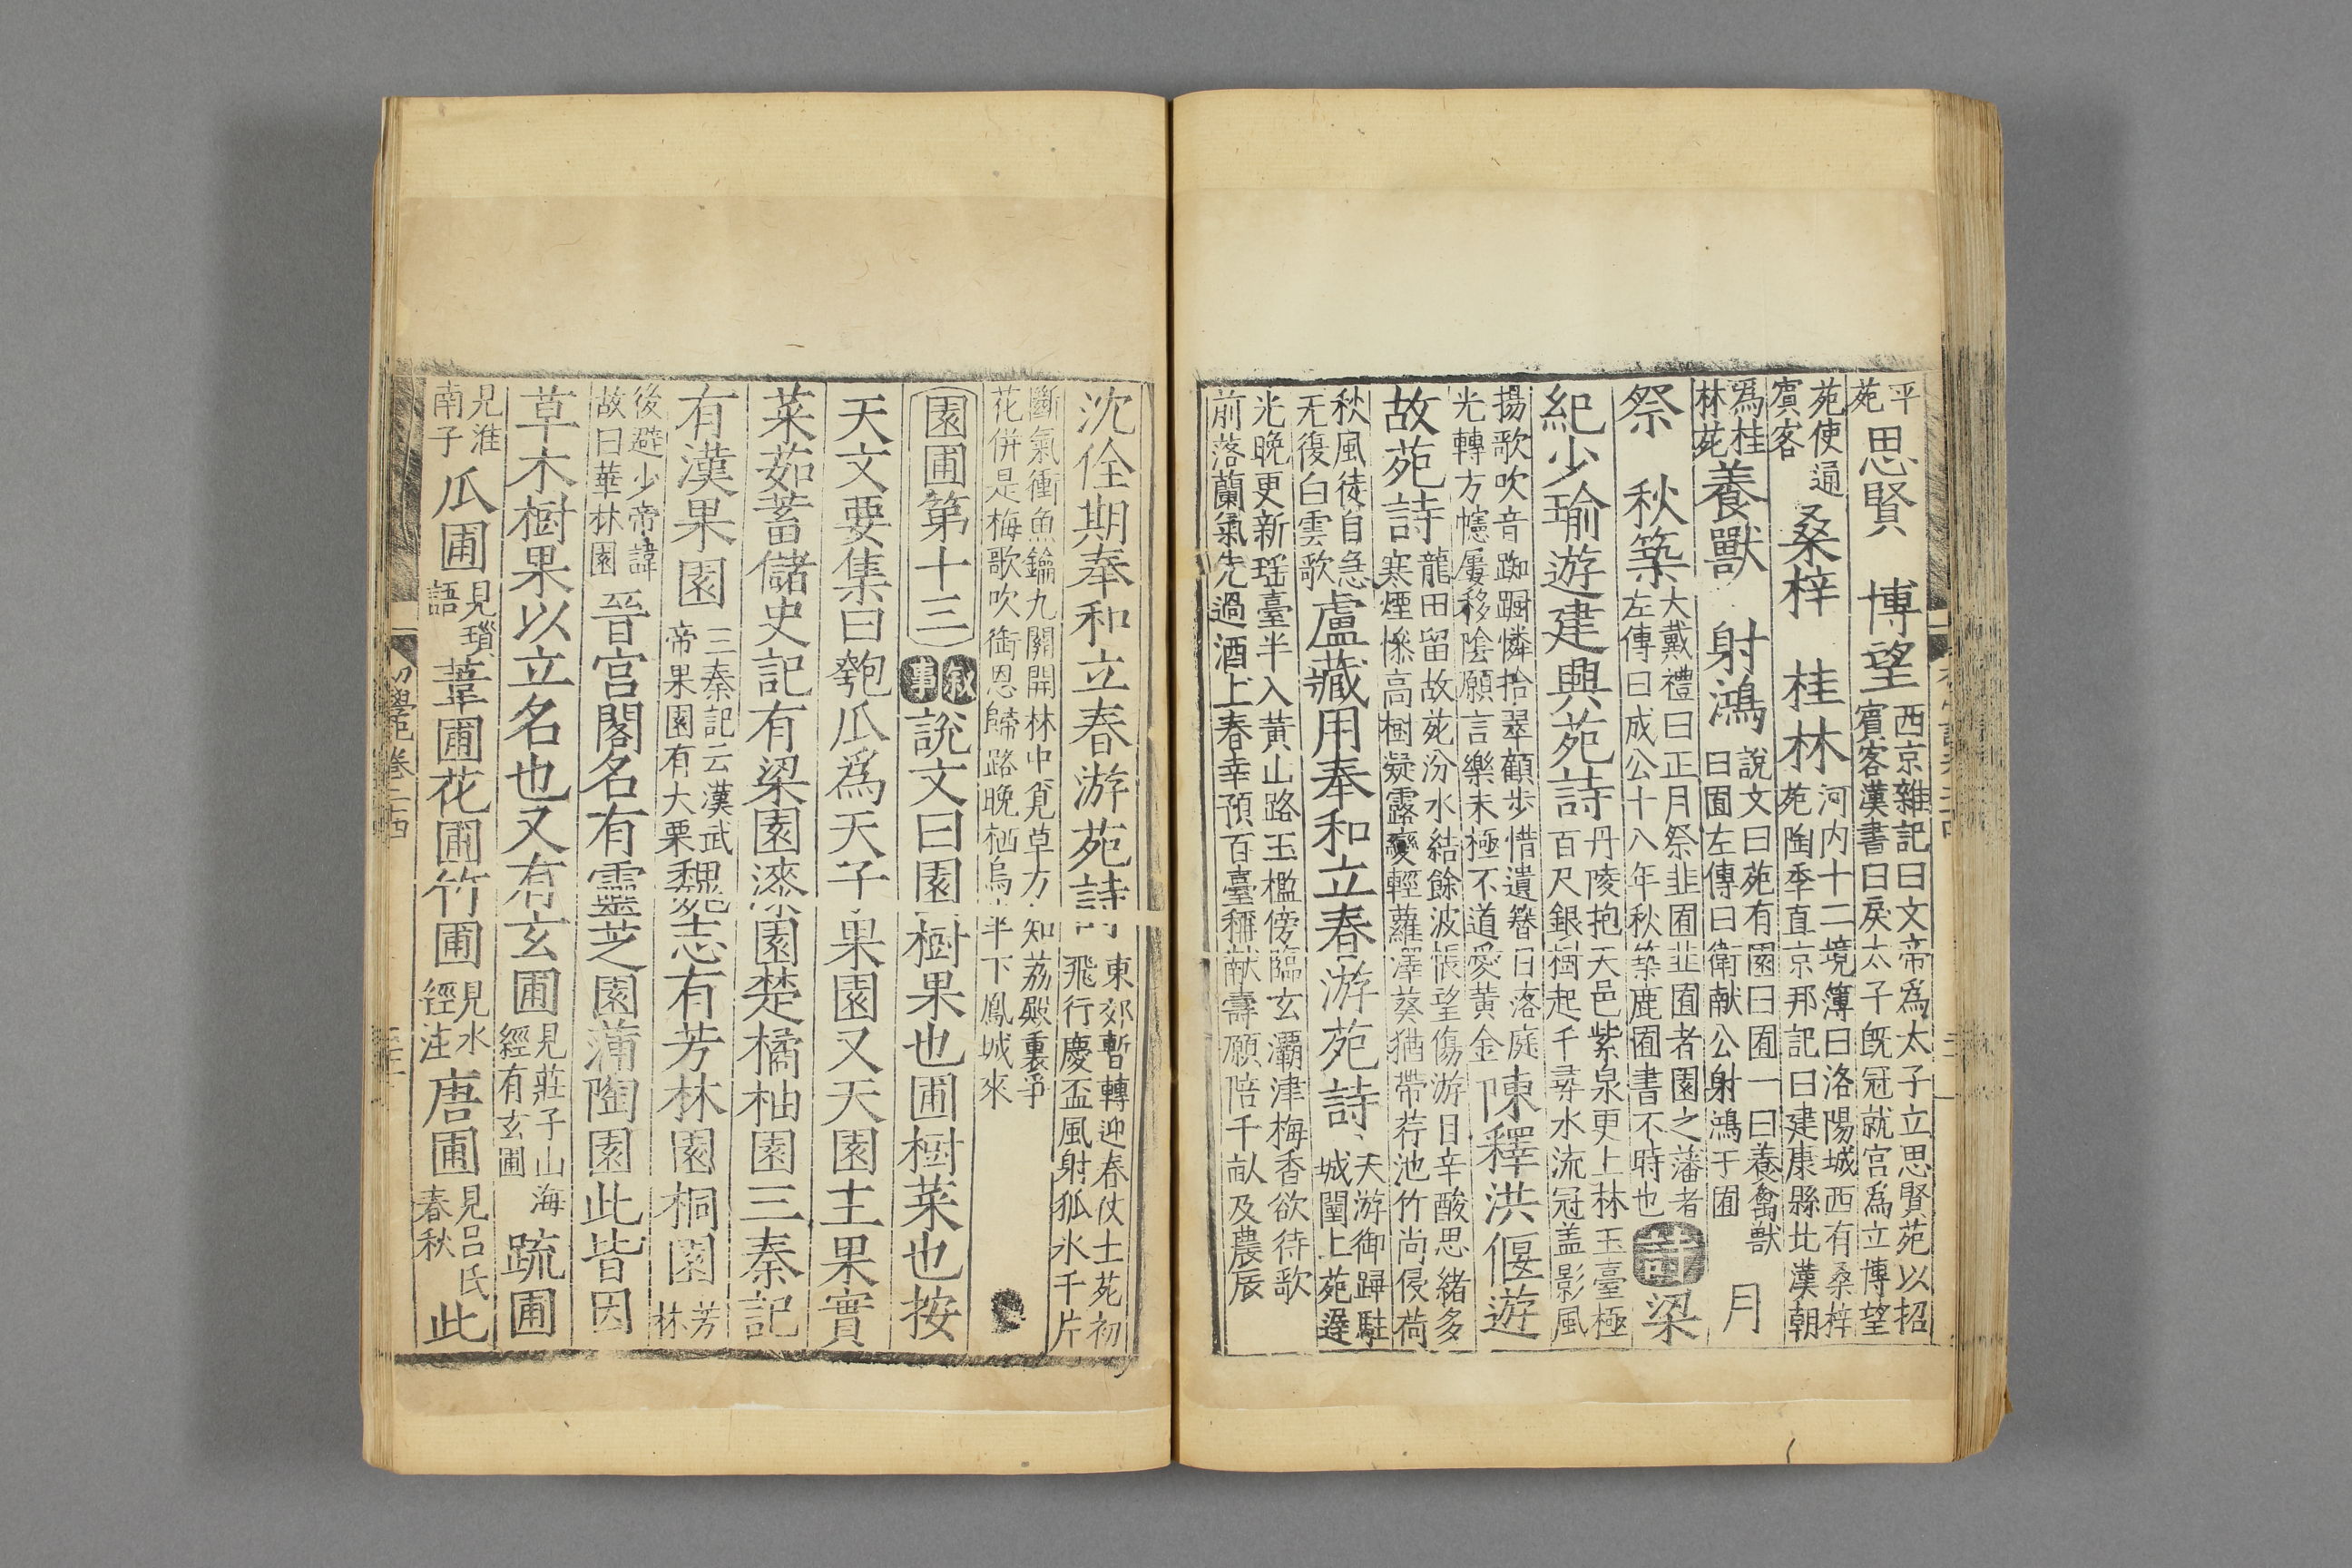 平苑 思賢 博望 西京雜記曰文帝爲太子立思賢苑以招賓客漢書曰戾太子旣冠就宫爲立博望
苑使通賓客 桑梓 桂林 河内十二境簿曰洛陽城西有桑梓苑陶季直京邦記曰建康縣北漢朝
爲桂林苑 養獸 射鴻 說文曰苑有園曰囿一曰養禽獸曰囿左傳曰衛献公射鴻于囿 月
祭 秋築 大戴禮曰正月祭韭囿韭囿者園之藩者左傳曰成公十八年秋築鹿囿書不時也 詩 梁
紀少瑜遊建興苑詩 丹陵抱天邑紫泉更上林玉臺極百尺銀樹起千尋水流冠盖影風
揚歌吹音踟蹰憐拾翠顧步惜遺簪日落庭光轉方幰屢移陰願言樂未極不道愛黄金 陳釋洪偃遊
故苑詩 龍田留故苑汾水結餘波悵望傷游日辛酸思緒多寒煙慘高樹凝露變輕蘿澤葵猶帶荇池竹尚侵荷
秋風徒自急无復白雲歌 盧藏用奉和立春游苑詩 天游御蹕駐城闉上苑遲
光晚更新瑶臺半入黄山路玉檻傍臨玄灞津梅香欲待歌前落蘭氣先過酒上春幸預百臺稱献壽願陪千畝及農辰
沈佺期奉和立春游苑詩 東郊暫轉迎春仗土苑初飛行慶盃風射狐氷千片
斷氣衝魚鑰九關開林中覓草方知荔殿裏爭花併是梅歌吹銜恩歸路晚栖烏半下鳳城來
園圃第十三 叙事 說文曰園樹果也圃樹菜也按
天文要集曰匏瓜爲天子果園又天園主果實
菜茹蓄儲史記有梁園漆園楚橘柚園三秦記
有漢果園 三秦記云漢武帝果園有大栗 魏志有芳林園桐園 芳林
後避少帝諱故曰華林園 晉宫閣名有靈芝園蒲陶園此皆因
草木樹果以立名也又有玄圃 見莊子山海經有玄圃 疏圃
見淮南子 瓜圃 見瑣語 葦圃花圃竹圃 見水經注 唐圃 見吕氏春秋 此
初學記卷二十四